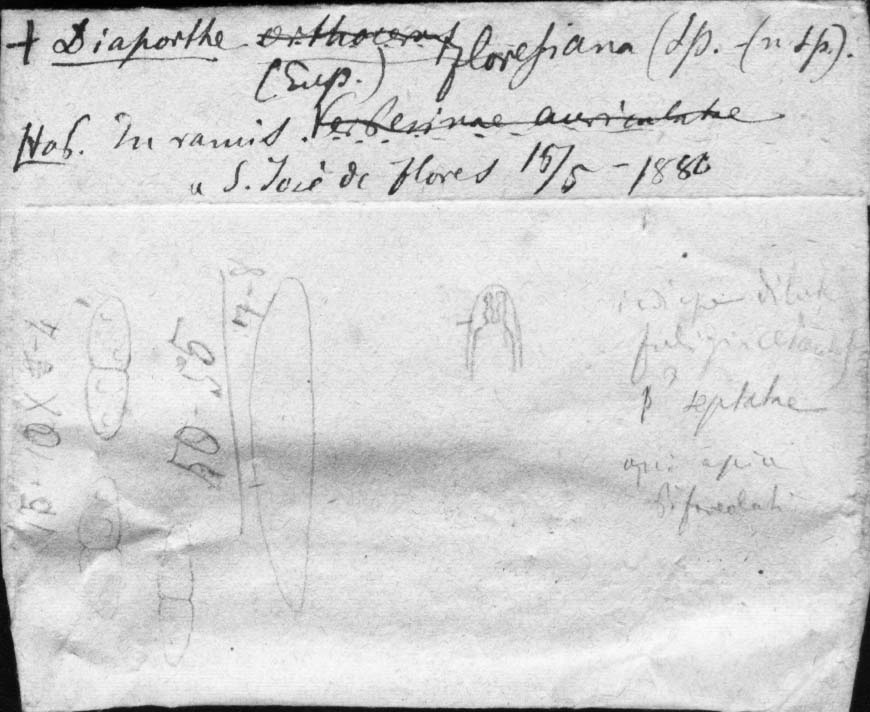 + Diaporthe orthoceras floresiana (Sp. - (n sp).
(Eup.)
Hab. In ramis Verbesinae auriculatae
a S. José de Flores 15/5 - 1880
15-10 X 3-4
50-55
7-8
dilute
septatae
bifoveolati